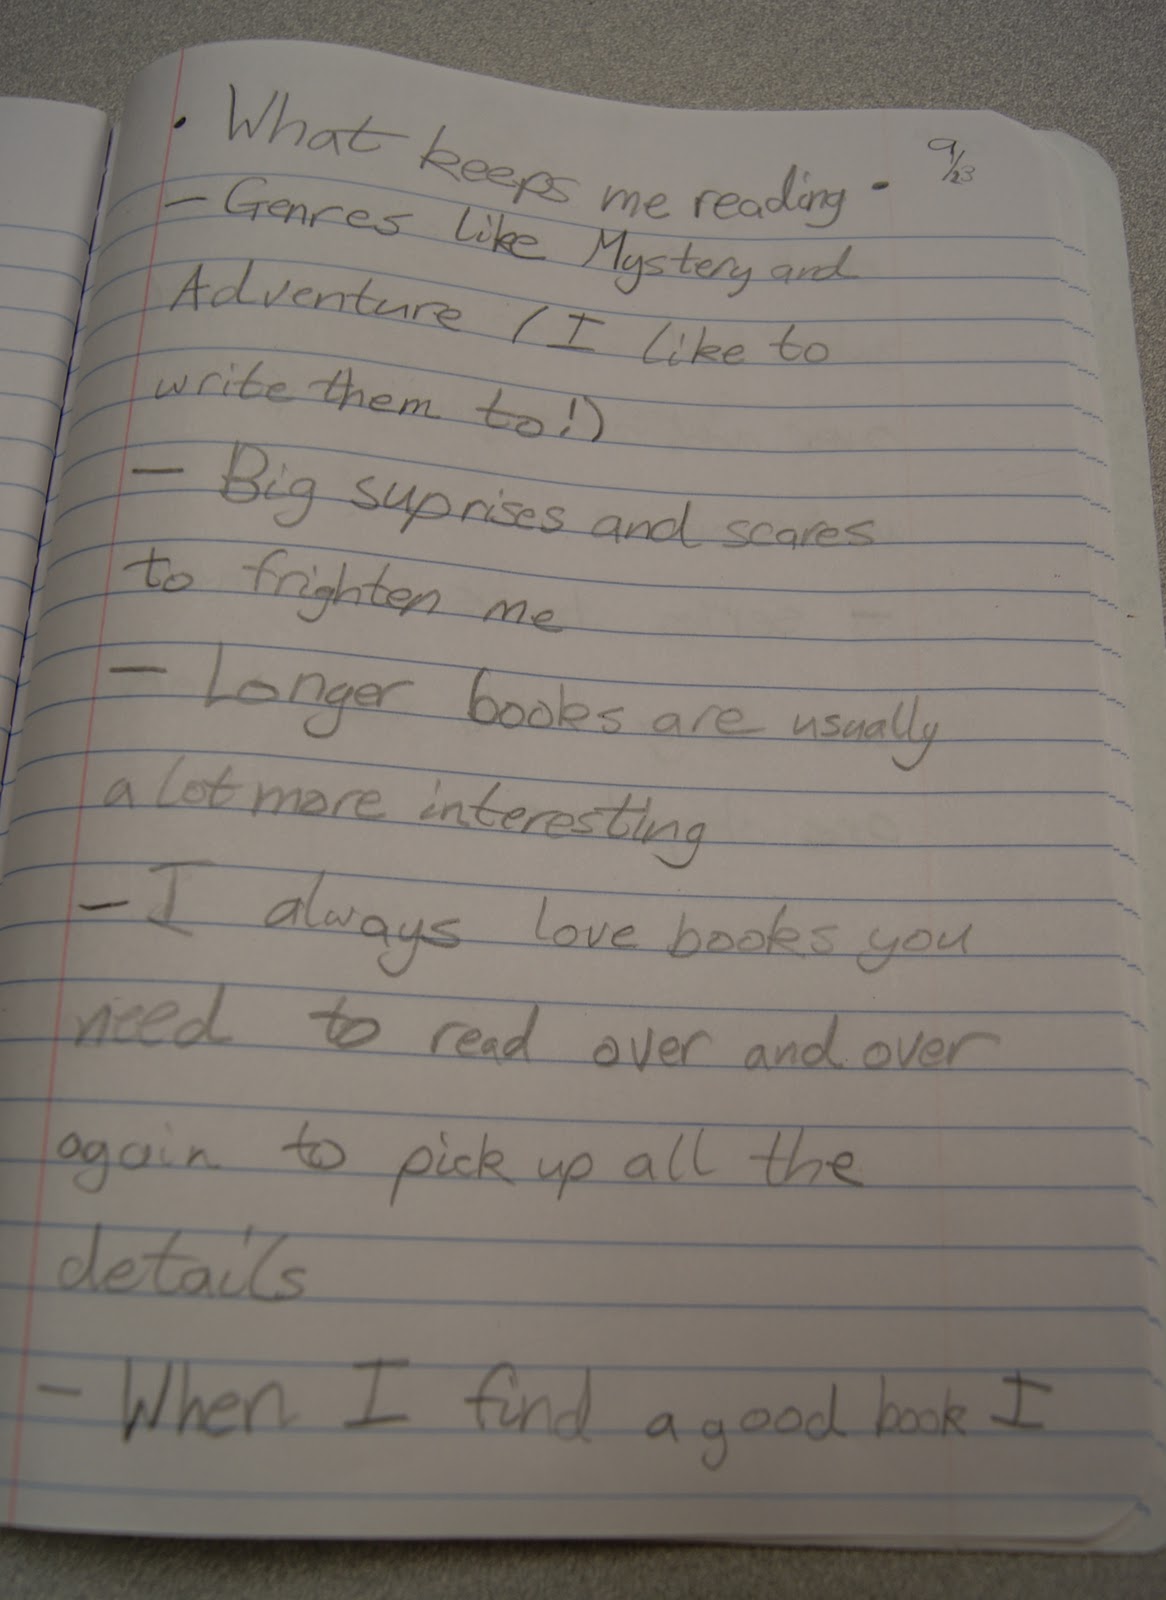 • What keeps me reading • 9/23
- Genres like Mystery and
Adventure (I like to
write them to!)
- Big suprises and scares
to frighten me
- Longer books are usually
a lot more interesting
- I always love books you
need to read over and over
again to pick up all the
details
- When I find a good book I